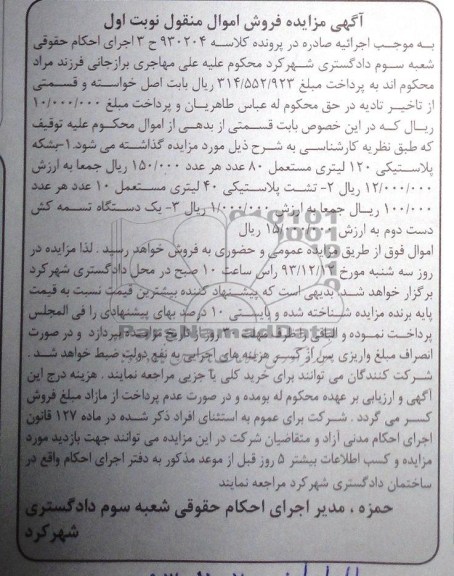 آگهی مزایده فروش اموال منقول نوبت اول
به موجب اجرائیه صادره در پرونده کلاسه ۹۳۰۲۰۴ ح ۳ اجرای احکام حقوقی
شعبه سوم دادگستری شهرکرد محکوم علیه علی مهاجری برازجانی فرزند مراد
محکوم اند به پرداخت مبلغ ۳۱۴/۵۵۲/۹۲۳ ریال بابت اصل خواسته و قسمتی
از تاخیر تادیه در حق محکوم له عباس طاهریان و پرداخت مبلغ ۱۰/۰۰۰/۰۰۰
ریال که در این خصوص بابت قسمتی از بدهی از اموال محکوم علیه توقیف
که طبق نظریه کارشناسی به شرح ذیل مورد مزایده گذاشته می شود. ۱-بشکه
پلاستیکی ۱۲۰ لیتری مستعمل ۸۰ عدد هر عدد ۱۵۰/۰۰۰ ریال جمعا به ارزش
۱۲/۰۰۰/۰۰۰ ریال ۲- تشت پلاستیکی ۴۰ لیتری مستعمل ۱۰ عدد هر عدد
۱۰۰/۰۰۰ ریال جمعا به ارزش ۱/۰۰۰/۰۰۰ ریال ۳- یک دستگاه تسمه کش
دست دوم به ارزش ریال
اموال فوق از طریق مزایده عمومی و حضوری به فروش خواهد رسید . لذا مزایده در
روز سه شنبه مورخ ۹۳/۱۲/۱۲ راس ساعت ۱۰ صبح در محل دادگستری شهرکرد
برگزار خواهد شد. بدیهی است که پیشنهاد کننده بیشترین قیمت نسبت به قیمت
پایه برنده مزایده شناخته شده و بایستی ۱۰ درصد بهای پیشنهادی را فی المجلس
پرداخت نموده و الباقی را ظرف مهلت روز از تاریخ مزایده بپردازد و در صورت
انصراف مبلغ واریزی پس از کسر هزینه های اجرایی به نفع دولت ضبط خواهد شد .
شرکت کنندگان می توانند برای خرید کلی یا جزیی مراجعه نمایند . هزینه درج این
آگهی و ارزیابی بر عهده محکوم له بوده و در صورت عدم پرداخت از مازاد مبلغ فروش
کسر می گردد . شرکت برای عموم به استثنای افراد ذکر شده در ماده ۱۲۷ قانون
اجرای احکام مدنی آزاد و متقاضیان شرکت در این مزایده می توانند جهت بازدید مورد
مزایده و کسب اطلاعات بیشتر ۵ روز قبل از موعد مذکور به دفتر اجرای احکام واقع در
ساختمان دادگستری شهرکرد مراجعه نمایند
حمزه ، مدیر اجرای احکام حقوقی شعبه سوم دادگستری
شهرکرد